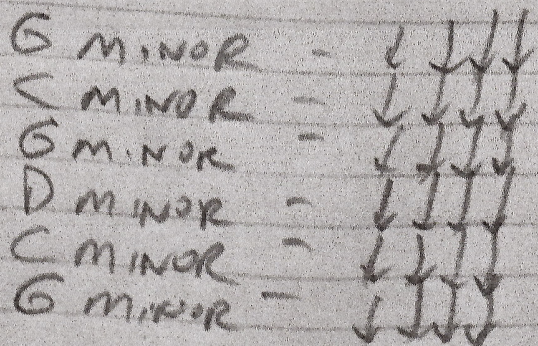 G MINOR - ↓ ↓ ↓ ↓
C MINOR - ↓ ↓ ↓ ↓
G MINOR - ↓ ↓ ↓ ↓
D MINOR - ↓ ↓ ↓ ↓
C MINOR - ↓ ↓ ↓ ↓
G MINOR - ↓ ↓ ↓ ↓